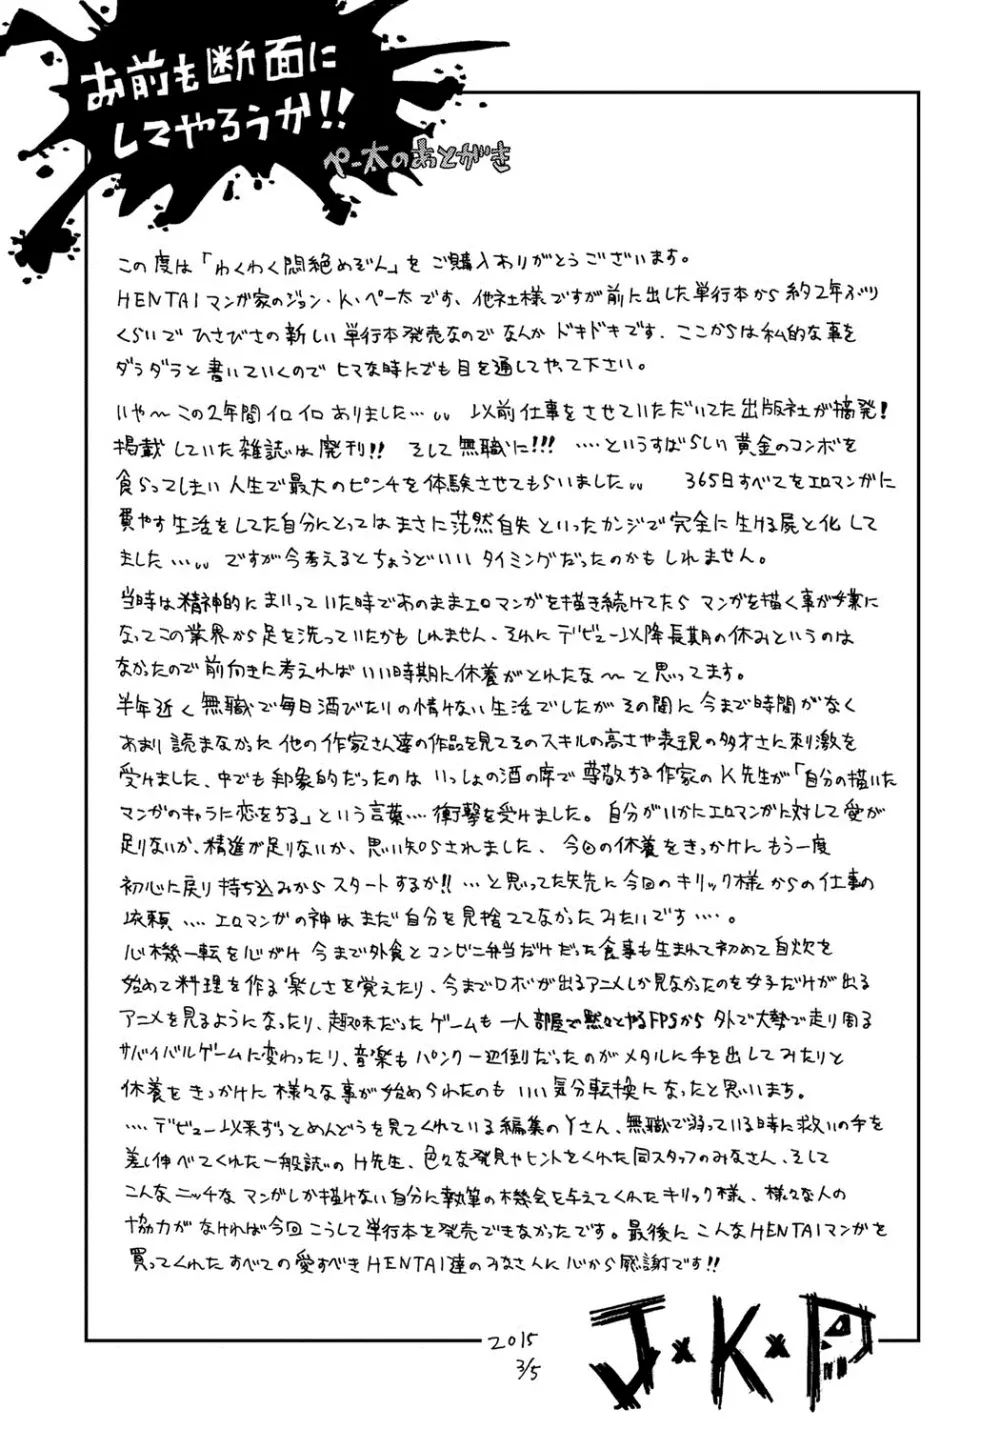 お前も断面に
してやろうか!!
ペー太のあとがき
この度は「わくわく悶絶めぞん」をご購入ありがとうございます。
HENTAIマンガ家のジョン・K・ペー太です、他社様ですが前に出した単行本から約2年ぶり
くらいでひさびさの新しい単行本発売なのでなんかドキドキです、ここからは私的な事を
ダラダラと書いていくのでヒマな時にでも目を通してやって下さい。
いや〜この2年間イロイロありました…。。以前仕事をさせていただいてた出版社が摘発!
掲載していた雑誌は廃刊!! そして無職に!!! ‥‥というすばらしい黄金のコンボを
食らってしまい人生で最大のピンチを体験させてもらいました。。 365日すべてをエロマンガに
費やす生活をしてた自分にとってはまさに茫然自失といったカンジで完全に生ける屍と化して
ました…。。ですが今考えるとちょうどいいタイミングだったのかもしれません。
当時は精神的にまいっていた時であのままエロマンガを描き続けてたらマンガを描く事が嫌に
なってこの業界から足を洗っていたかもしれません、それにデビュー以降長期の休みというのは
なかったので前向きに考えればいい時期に休養がとれたな〜と思ってます。
半年近く無職で毎日酒びたりの情けない生活でしたがその間に今まで時間がなく
あまり読まなかった他の作家さん達の作品を見てそのスキルの高さや表現の多才さに刺激を
受けました、中でも印象的だったのはいっしょの酒の席で尊敬する作家のK先生が「自分の描いた
マンガのキャラに恋をする」という言葉‥‥衝撃を受けました。自分がいかにエロマンガに対して愛が
足りないか、精進が足りないか、思い知らされました、今回の休養をきっかけにもう一度
初心に戻り持ち込みからスタートするか!!…と思ってた矢先に今回のキリック様からの仕事の
依頼‥‥エロマンガの神はまだ自分を見捨ててなかったみたいです‥‥。
心機一転を心がけ今まで外食とコンビニ弁当だけだった食事も生まれて初めて自炊を
始めて料理を作る楽しさを覚えたり、今までロボが出るアニメしか見なかったのを女子だけが出る
アニメを見るようになったり、趣味だったゲームも一人部屋で黙々とやるFPSから外で大勢で走り周る
サバイバルゲームに変わったり、音楽もパンク一辺倒だったのがメタルに手を出してみたりと
休養をきっかけに様々な事が始められたのもいい気分転換になったと思います。
‥‥デビュー以来ずっとめんどうを見てくれている編集のYさん、無職で弱っている時に救いの手を
差し伸べてくれた一般誌のH先生、色々な発見やヒントをくれた同スタッフのみなさん、そして
こんなニッチなマンガしか描けない自分に執筆の機会を与えてくれたキリック様、様々な人の
協力がなければ今回こうして単行本を発売できなかったです。最後にこんなHENTAIマンガを
買ってくれたすべての愛すべきHENTAI達のみなさんに心から感謝です!!
2015
3/5
J×K×P